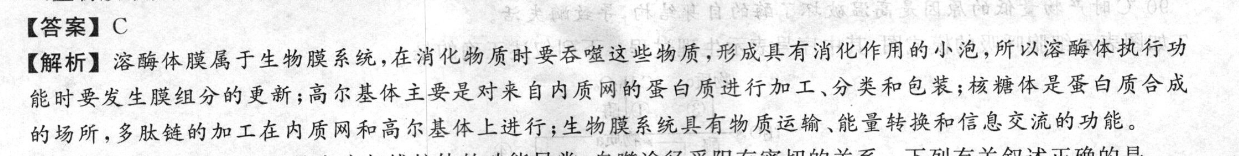 【答案】C
【解析】溶酶体膜属于生物膜系统,在消化物质时要吞噬这些物质,形成具有消化作用的小泡,所以溶酶体执行功
能时要发生膜组分的更新;高尔基体主要是对来自内质网的蛋白质进行加工、分类和包装;核糖体是蛋白质合成
的场所,多肽链的加工在内质网和高尔基体上进行;生物膜系统具有物质运输、能量转换和信息交流的功能。